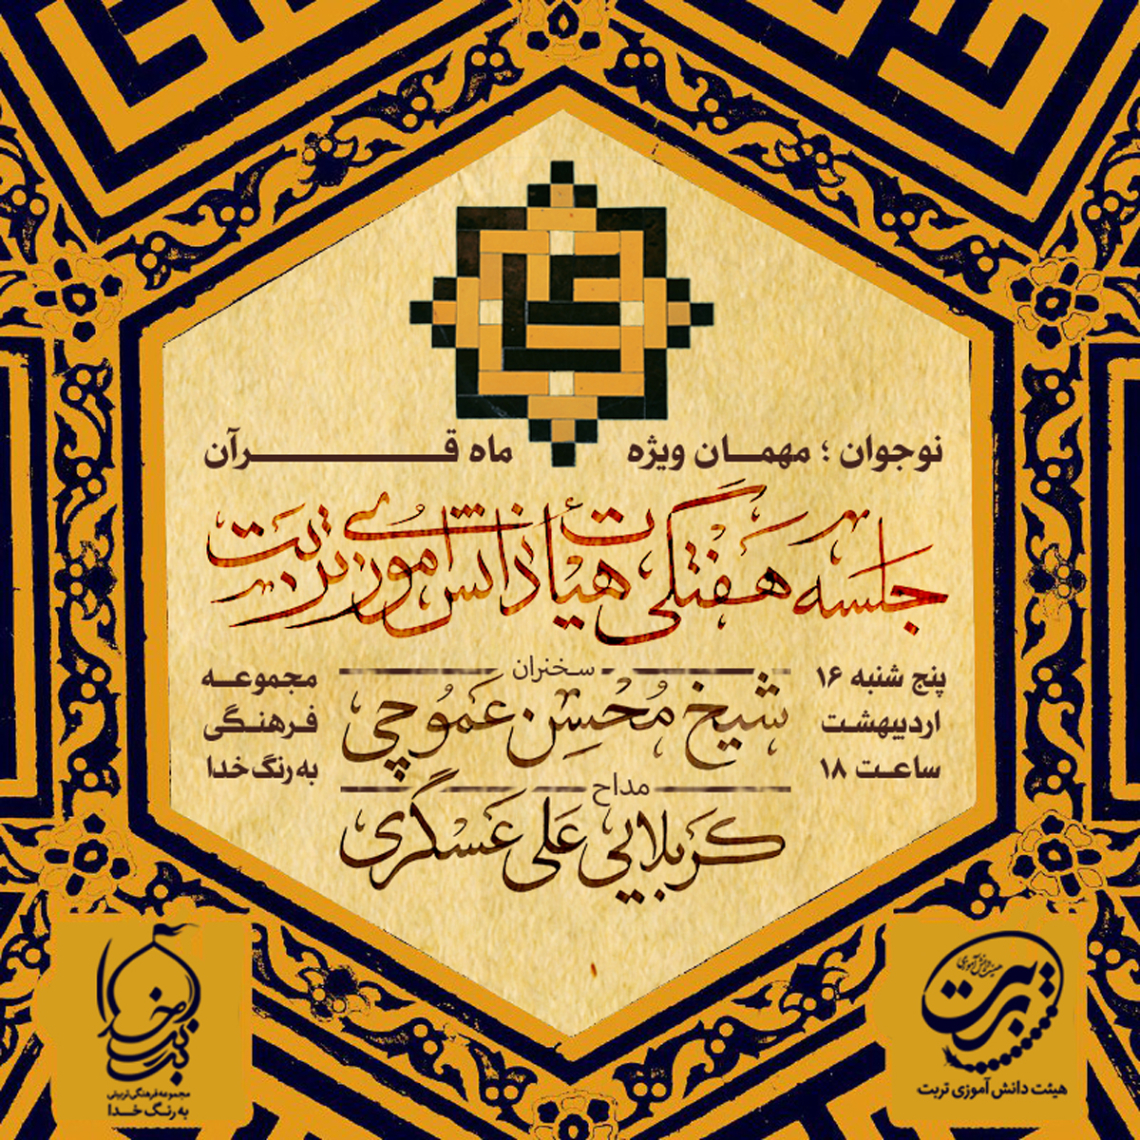 نوجوان ؛ مهمان ویژه ماه قرآن
جلسه هفتگی هیأت دانش آموزی تربت
پنج شنبه ۱۶
اردیبهشت
ساعت ۱۸
سخنران
شیخ مُحْسِن عَموُچی
مداح
کَربلایی عَلی عَسگری
مجموعه
فرهنگی
به رنگ خدا
هیئت دانش آموزی
تربت
هیئت دانش آموزی تربت
به رنگ خدا
مجموعه فرهنگی تربیتی
به رنگ خدا